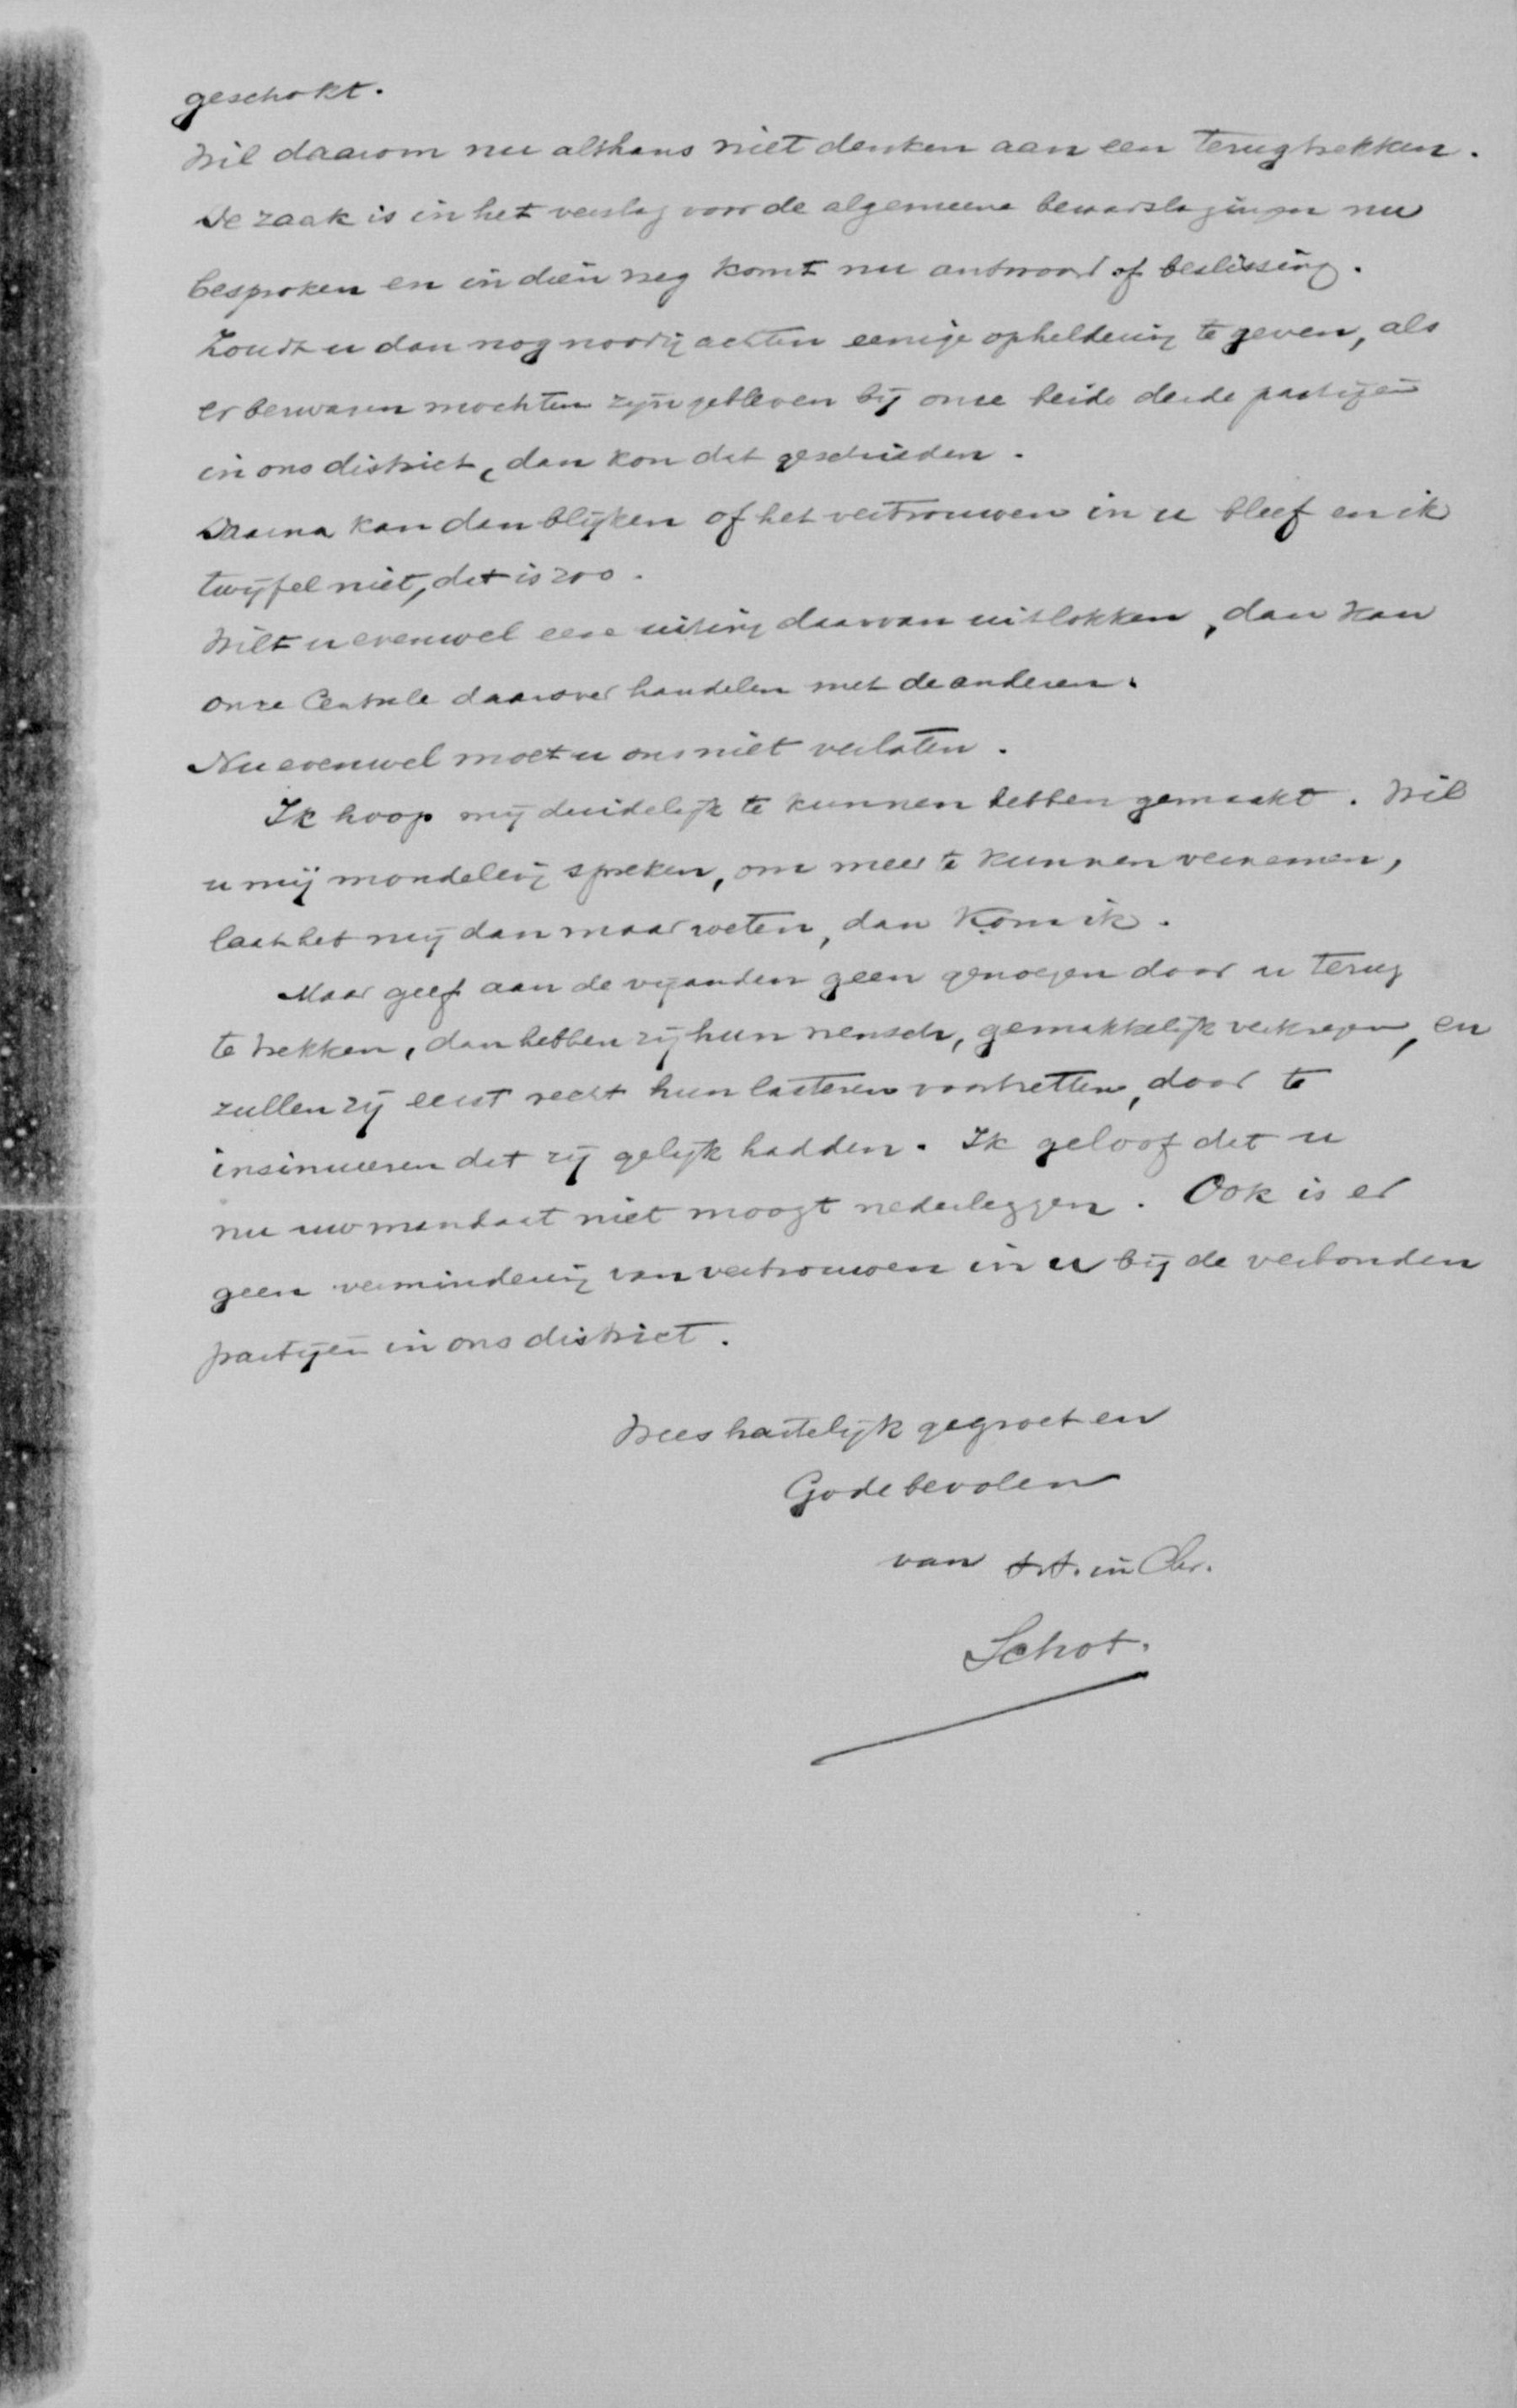 geschokt.
Wil daarom nu althans niet denken aan een terugtrekken.
De zaak is in het verslag voor de algemeene beraadslagingen nu
besproken en in dien weg komt nu antwoord of beslissing.
Zoudt u dan nog noodig achten eenige opheldering te geven, als
er bezwaren mochten zijn gebleven bij onze beide derde partijen
in ons district, dan kon dat geschieden.
Daarna kan dan blijken of het vertrouwen in u bleef en ik
twijfel niet, dat is zoo.
Wilt u evenwel eene uiting daarvan uitlokken, dan kan
onze Centrale daarover handelen met de anderen.
Nu evenwel moet u ons niet verlaten.
Ik hoop mij duidelijk te kunnen hebben gemaakt. Wil
u mij mondeling spreken, om meer te kunnen vernemen,
laat het mij dan maar weten, dan kom ik.
Maar geef aan de vijanden geen genoegen door u terug
te trekken, dan hebben zij hun wensch, gemakkelijk verkregen, en
zullen zij eerst recht hun lasteren voortzetten, door te
insinueren dat zij gelijk hadden. Ik geloof dat u
nu uw mandaat niet moogt nederleggen. Ook is er
geen vermindering van vertrouwen in u bij de verbonden
partijen in ons district.
Wees hartelijk gegroet en
Gode bevolen
van t.t. in Chr.
Schot.